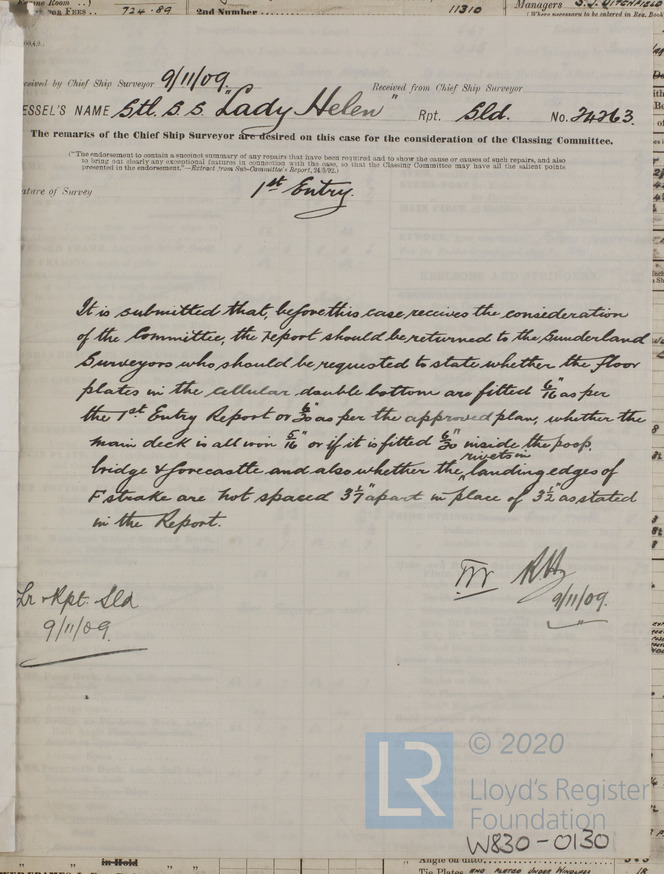 724.89
2nd Number
11310
Managers
(Where necessary to be entered in Reg. Book
ceived by Chief Ship Surveyor 9/11/09.
Received from Chief Ship Surveyor
ESSEL'S NAME Stl. S.S. "Lady Helen"
Rpt. Sld. No. 24263.
The remarks of the Chief Ship Surveyor are desired on this case for the consideration of the Classing Committee.
("The endorsement to contain a succinct summary of any repairs that have been required and to show the cause or causes of such repairs, and also
to bring out clearly any exceptional features in connection with the case, so that the Classing Committee may have all the salient points
presented in the endorsement."—Extract from Sub-Committee's Report, 24/3/92.)
ature of Survey
1st Entry.
It is submitted that, before this case receives the consideration
of the Committee, the report should be returned to the Sunderland
Surveyors who should be requested to state whether the floor
plates in the cellular double bottom are fitted 6/16" as per
the 1st Entry Report or 6/20" as per the approved plan, whether the
main deck is all iron 5/16" or if it is fitted 6/20" inside the poop,
bridge & forecastle and also whether the rivets in landing edges of
F strake are not spaced 3 1/7" apart in place of 3 1/2" as stated
in the Report.
9/11/09.
Lr & Rpt. Sld
9/11/09.
LR
© 2020
Lloyd's Register
Foundation
W830-0130
in Hold
Angle on ditto
Tie Plates